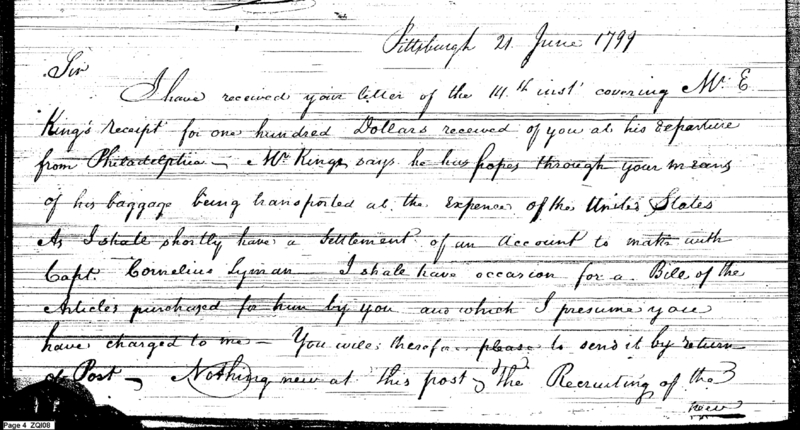 Pittsburgh 21 June 1799
Sir
I have received your letter of the 14th inst covering Mr. E
King's receipt for one hundred Dollars received of you at his Departure
from Philadelphia - Mr Kings says he has hopes through your means
of his baggage being transported at the Expence of the United States
As I shall shortly have a Settlement of an Account to make with
Capt. Cornelius Lyman I shall have occasion for a Bill of the
Articles purchased for him by you and which I presume you
have charged to me - You will therefore please to send it by return
of Post - Nothing new at this post, the Recruiting of the 3
new
Page 4 ZQI08